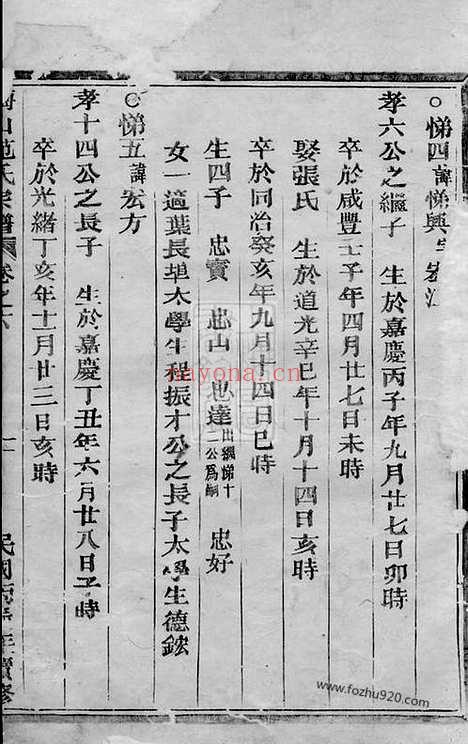 ○悌四諱悌興字宏江
孝六公之繼子 生於嘉慶丙子年九月廿七日卯時
卒於咸豐壬子年四月廿七日未時
娶張氏 生於道光辛巳年十月十四日亥時
卒於同治癸亥年九月十四日巳時
生四子 忠實 忠山 忠達出繼悌十二公爲嗣 忠好
女一適葉長埠太學生程振才公之長子太學生德鋐
○悌五諱宏方
孝十四公之長子 生於嘉慶丁丑年六月廿八日子時
卒於光緒丁亥年十一月廿三日亥時
山范氏宗譜 卷之六
民國 年續修
nayona.cn
www.fozhu920.com